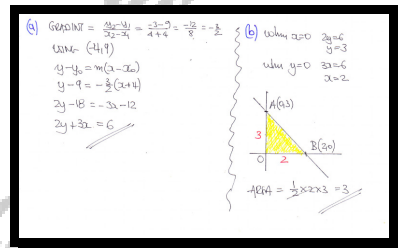 (a) GRADIENT = y₂-y₁/x₂-x₁ = -3-9/4+4 = -12/8 = -3/2
USING (-4,9)
y-y₀ = m(x-x₀)
y-9 = -3/2(x+4)
2y-18 = -3x-12
2y+3x = 6
(b) when x=0 2y=6
y=3
when y=0 3x=6
x=2
A(0,3)
3
B(2,0)
0
2
AREA = 1/2×2×3 = 3